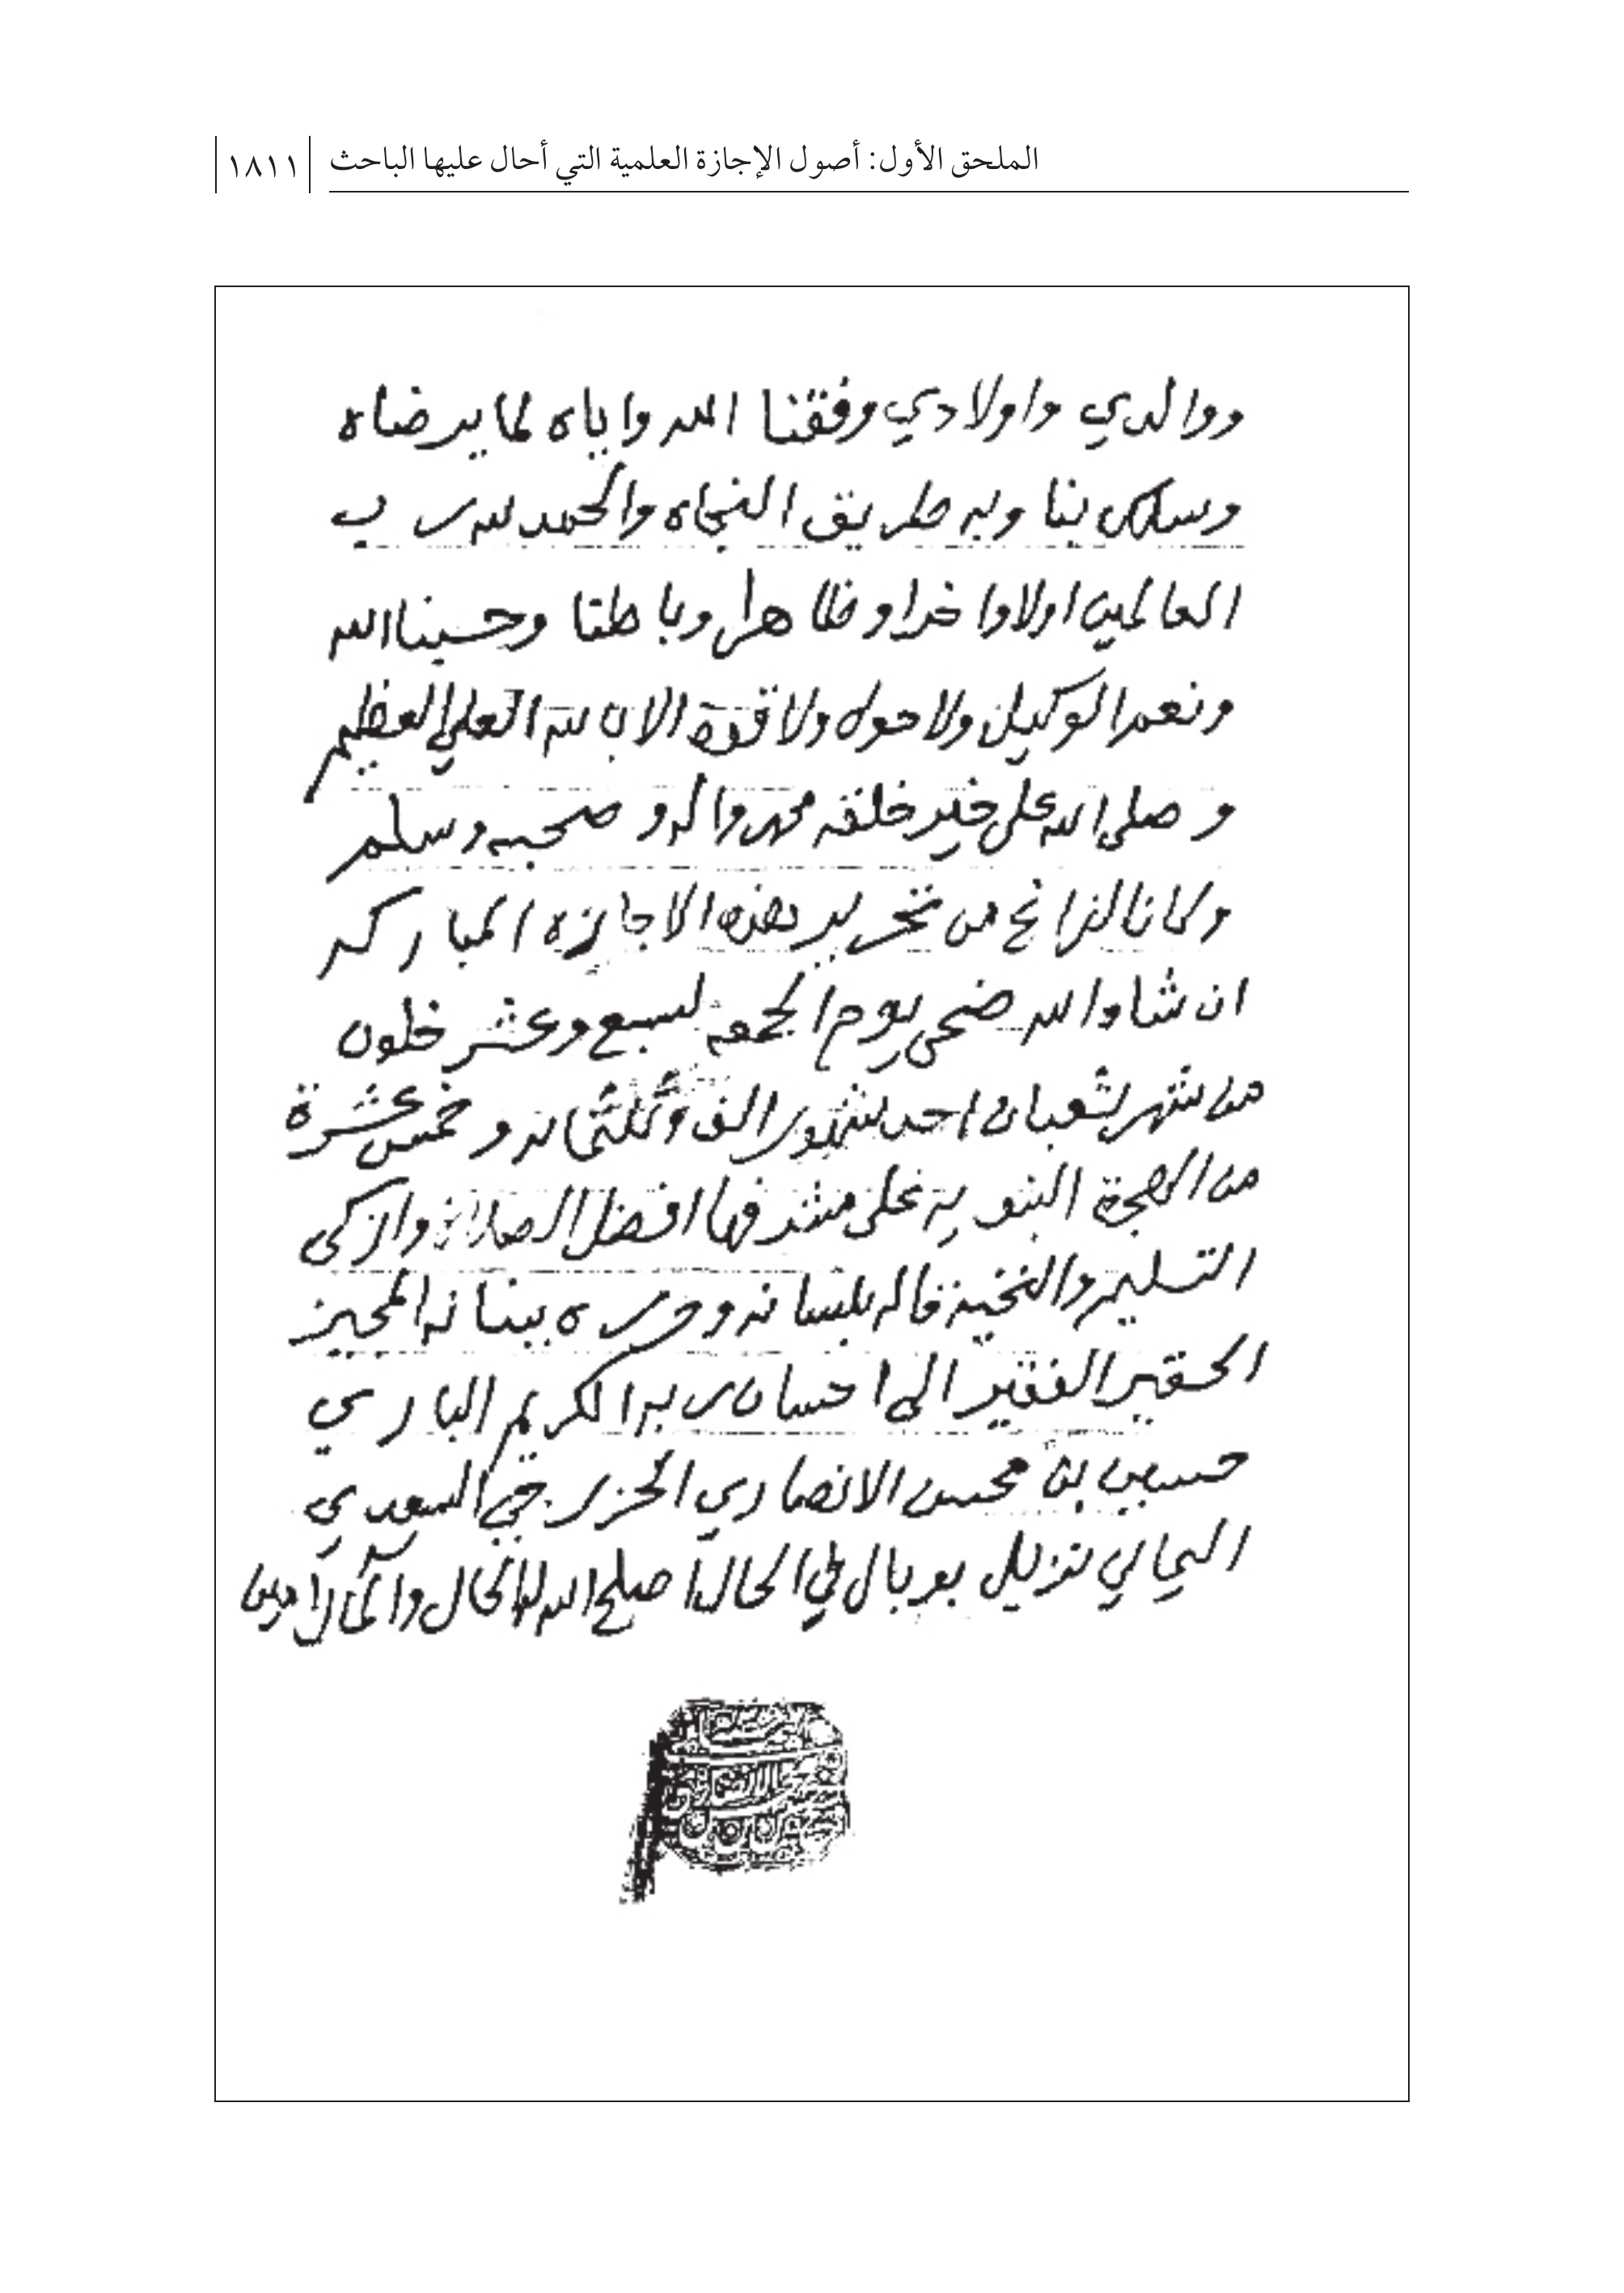 الملحق الأول: أصول الإجازة العلمية التي أحال عليها الباحث ١٨١١
ووالدي واولادي وفقنا الله واياه لما يرضاه
وسلك بنا وبه طريق النجاه والحمد لله رب
العالمين اولا واخرا وظاهرا وباطنا وحسبنا الله
ونعم الوكيل ولا حول ولا قوة الا بالله العلي العظيم
وصلى الله على خير خلقه محمد واله وصحبه وسلم
وكان الفراغ من تحرير هذه الاجازه المباركه
ان شاء الله ضحى يوم الجمعه لسبع وعشر خلون
من شهر شعبان احد شهور الف وثلثمائه وخمس عشرة
من الهجرة النبويه على مشرفها افضل الصلاة وازكى
التسليم والتحية قاله بلسانه وحرره ببنانه المجيز
الحقير الفقير الى احسان ربه الكريم الباري
حسين بن محسن الانصاري الخزرجي السعدي
اليماني نزيل بوبال في الحال اصلح الله له الحال والمآل امين